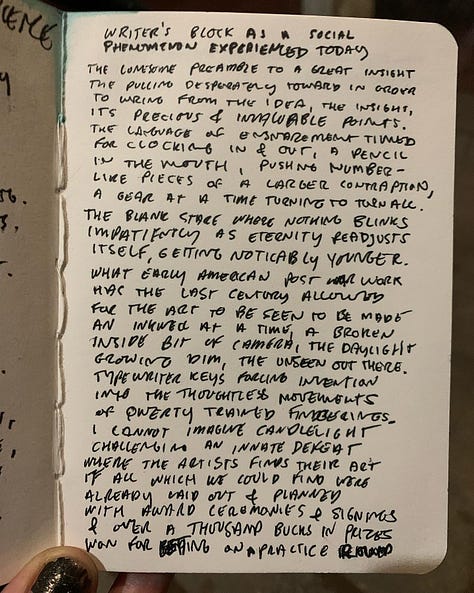 ENCE
WRITER'S BLOCK AS A SOCIAL
PHENOMENON EXPERIENCED TODAY
THE LONESOME PREAMBLE TO A GREAT INSIGHT
THE PULLING DESPERATELY TOWARD IN ORDER
TO WRING FROM THE IDEA, THE INSIGHT,
ITS PRECIOUS & INVALUABLE POINTS.
THE LANGUAGE OF ENSNAREMENT TIMED
FOR CLOCKING IN & OUT, A PENCIL
IN THE MOUTH, PUSHING NUMBER-
LIKE PIECES OF A LARGER CONTRAPTION,
A GEAR AT A TIME TURNING TO TURN ALL.
THE BLANK STARE WHERE NOTHING BLINKS
IMPATIENTLY AS ETERNITY READJUSTS
ITSELF, GETTING NOTICABLY YOUNGER.
WHAT EARLY AMERICAN POST WAR WORK
HAS THE LAST CENTURY ALLOWED
FOR THE ART TO BE SEEN TO BE MADE
AN AT A TIME, A BROKEN
INSIDE BIT OF CAMERA, THE DAYLIGHT
GROWING DIM, THE UNSEEN OUT THERE.
TYPEWRITER KEYS FORCING INVENTION
INTO THE THOUGHTLESS MOVEMENTS
OF QWERTY TRAINED FINGERINGS.
I CANNOT IMAGINE CANDLELIGHT
CHALLENGING AN INNATE DEFEAT
WHERE THE ARTISTS FINDS THEIR ART
IF ALL WHICH WE COULD FIND WERE
ALREADY LAID OUT & PLANNED
WITH AWARD CEREMONIES & SIGNINGS
& OVER A THOUSAND BUCKS IN PRIZES
WON FOR ON A PRACTICE